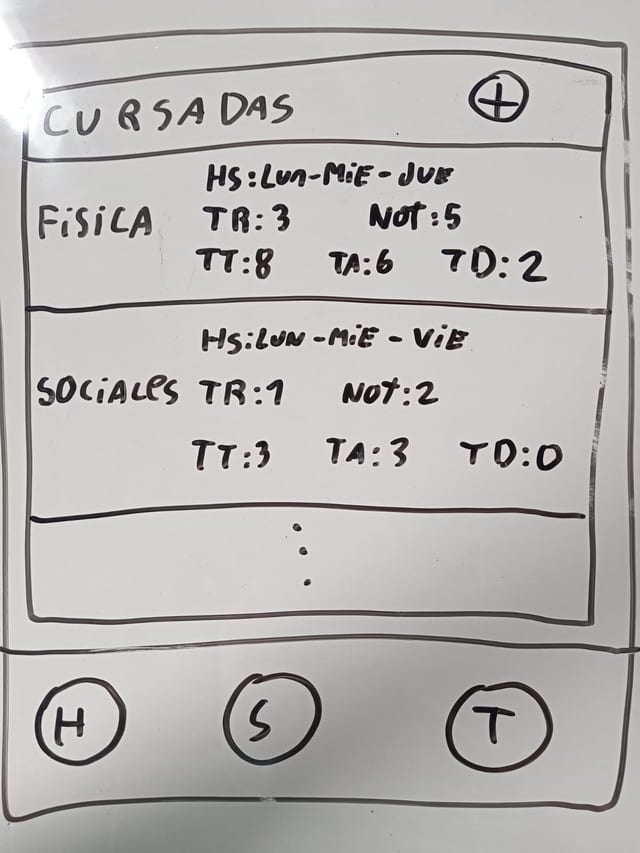 CURSADAS +
HS:LUN-MIE-JUE
FISICA TR:3 NOT:5
TT:8 TA:6 TD:2
HS:LUN-MIE-VIE
SOCIALES TR:1 NOT:2
TT:3 TA:3 TD:0
H S T